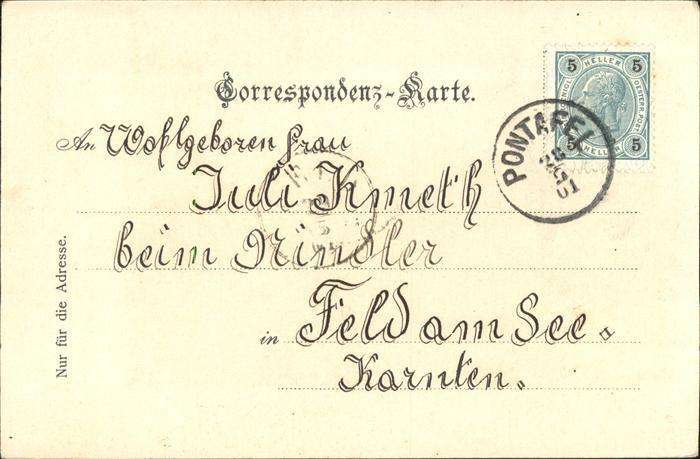 Correspondenz-Karte.
5 HELLER 5
KAISERL. KÖNIGL. OESTERR. POST
5 HELLER 5
PONTAFEL
01
An Wohlgeboren Frau
Juli Kmeth
beim Rindler
in Feld am See.
Karnten.
Nur für die Adresse.